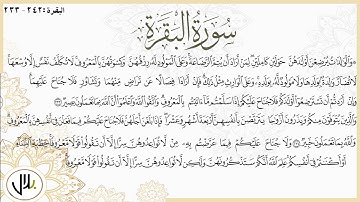 البقرة: ٢٤٢-٢٣٣
سورة البقرة
والوالدات يرضعن أولادهن حولين كاملين لمن أراد أن يتم الرضاعة وعلى المولود له رزقهن وكسوتهن بالمعروف لا تكلف نفس إلا وسعها
لا تضار والدة بولدها ولا مولود له بولده وعلى الوارث مثل ذلك فإن أرادا فصالا عن تراض منهما وتشاور فلا جناح عليهما
وإن أردتم أن تسترضعوا أولادكم فلا جناح عليكم إذا سلمتم ما آتيتم بالمعروف واتقوا الله واعلموا أن الله بما تعملون بصير
والذين يتوفون منكم ويذرون أزواجا يتربصن بأنفسهن أربعة أشهر وعشرا فإذا بلغن أجلهن فلا جناح عليكم فيما فعلن في أنفسهن بالمعروف
والله بما تعملون خبير ولا جناح عليكم فيما عرضتم به من
أو أكننتم في أنفسكم علم الله أنكم ستذكرونهن ولكن لا تواعدوهن سرا إلا أن تقولوا قولا معروفا